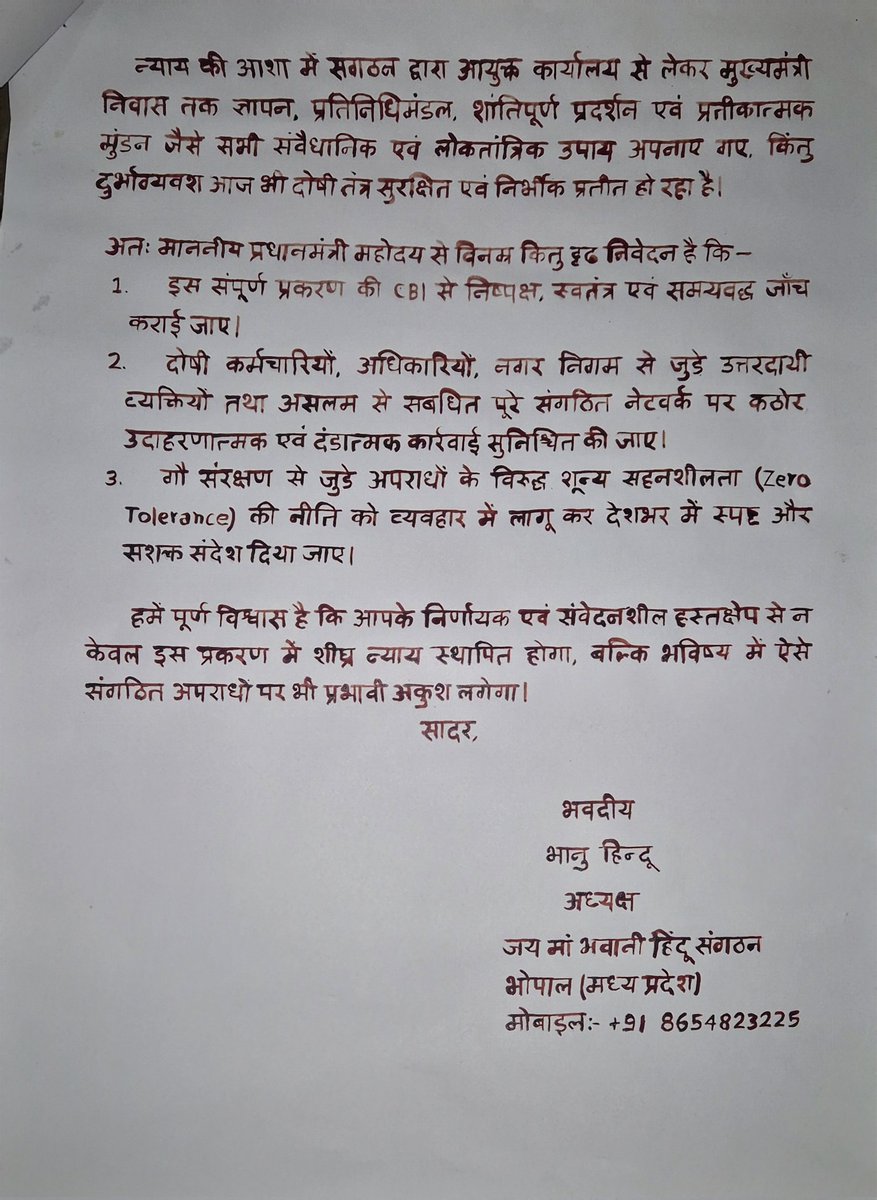 न्याय की आशा में सगठन द्वारा आयुक्त कार्यालय से लेकर मुख्यमंत्री
निवास तक ज्ञापन, प्रतिनिधिमंडल, शांतिपूर्ण प्रदर्शन एवं प्रतीकात्मक
मुंडन जैसे सभी संवैधानिक एवं लोकतांत्रिक उपाय अपनाए गए, किंतु
दुर्भाग्यवश आज भी दोषी तंत्र सुरक्षित एवं निर्भीक प्रतीत हो रहा है।
अतः माननीय प्रधानमंत्री महोदय से विनम्र किंतु दृढ निवेदन है कि—
1. इस संपूर्ण प्रकरण की CBI से निष्पक्ष, स्वतंत्र एवं समयबद्ध जाँच
कराई जाए।
2. दोषी कर्मचारियों, अधिकारियों, नगर निगम से जुडे उत्तरदायी
व्यक्तियों तथा असलम से सबधित पूरे संगठित नेटवर्क पर कठोर
उदाहरणात्मक एवं दंडात्मक कार्रवाई सुनिश्चित की जाए।
3. गौ संरक्षण से जुडे अपराधों के विरुद्ध शून्य सहनशीलता (Zero
Tolerance) की नीति को व्यवहार में लागू कर देशभर में स्पष्ट और
सशक्त संदेश दिया जाए।
हमें पूर्ण विश्वास है कि आपके निर्णायक एवं संवेदनशील हस्तक्षेप से न
केवल इस प्रकरण में शीघ्र न्याय स्थापित होगा, बल्कि भविष्य में ऐसे
संगठित अपराधों पर भी प्रभावी अकुश लगेगा।
सादर,
भवदीय
भानु हिन्दू
अध्यक्ष
जय मां भवानी हिंदू संगठन
भोपाल (मध्य प्रदेश)
मोबाइल:- +91 8654823225